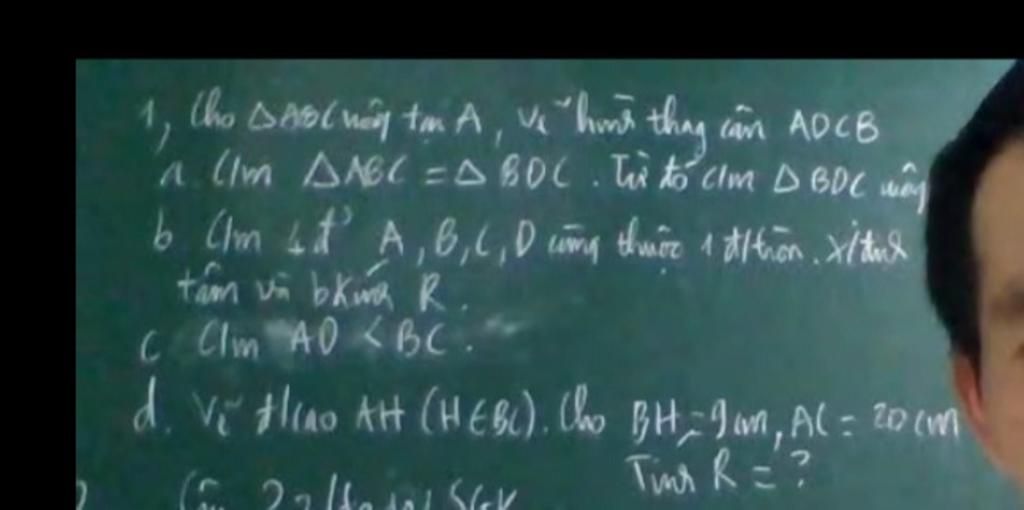 1, Cho △ABC vuông tại A, vẽ hình thang cân ADCB
a. C/m △ABC = △BDC. Từ đó c/m △BDC vuông
b C/m 4 đ' A, B, C, D cùng thuộc 1 đ/tròn. X/định
tâm và bkính R.
c C/m AD < BC.
d. Vẽ đ/cao AH (H∈BC). Cho BH = 9 cm, AC = 20 cm
Tính R = ?
SGK